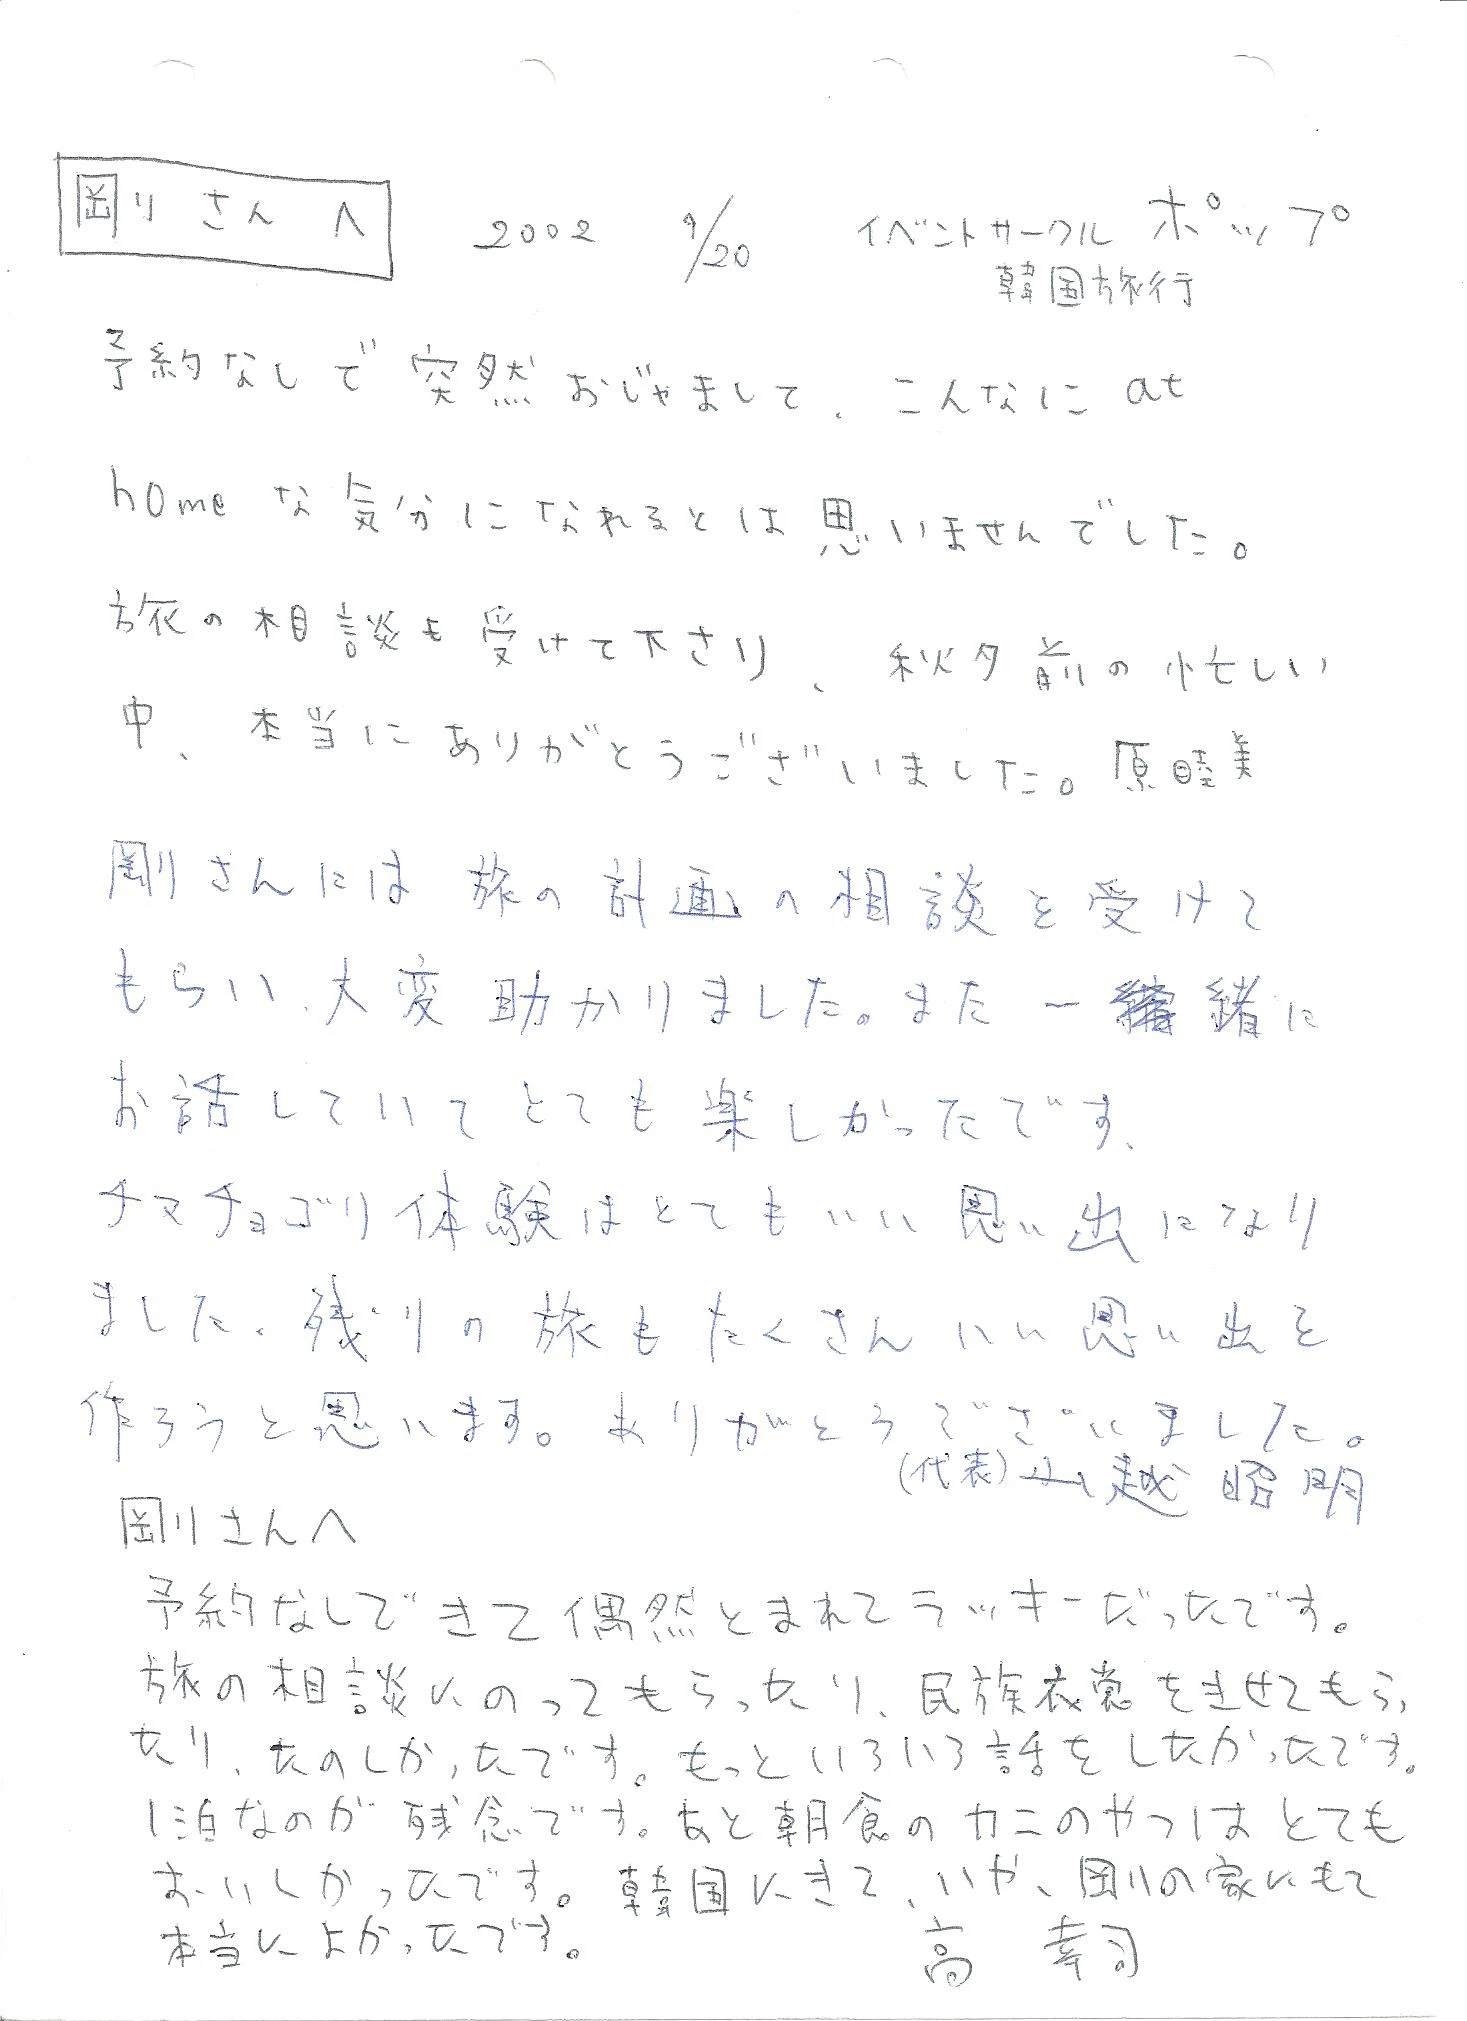 剛さんへ 2002 9/20 イベントサークル ポップ
韓国旅行
予約なしで突然おじゃまして、こんなにat
homeな気分になれるとは思いませんでした。
旅の相談も受けて下さり、秋夕前の忙しい
中、本当にありがとうございました。原睦美
剛さんには旅の計画の相談を受けて
もらい、大変助かりました。また一緒に
お話していてとても楽しかったです、
チマチョゴリ体験はとてもいい思い出になり
ました、残りの旅もたくさんいい思い出を
作ろうと思います。ありがとうございました。
(代表)山越 昭明
剛さんへ
予約なしできて偶然とまれてラッキーだったです。
旅の相談にのってもらったり、民族衣裳をきせてもらっ
たり、たのしかったです。もっといろいろ話をしたかったです。
1泊なのが残念です。あと朝食のカニのやつはとても
おいしかったです。韓国にきて、いや、剛の家にきて
本当によかったです。 高 幸司